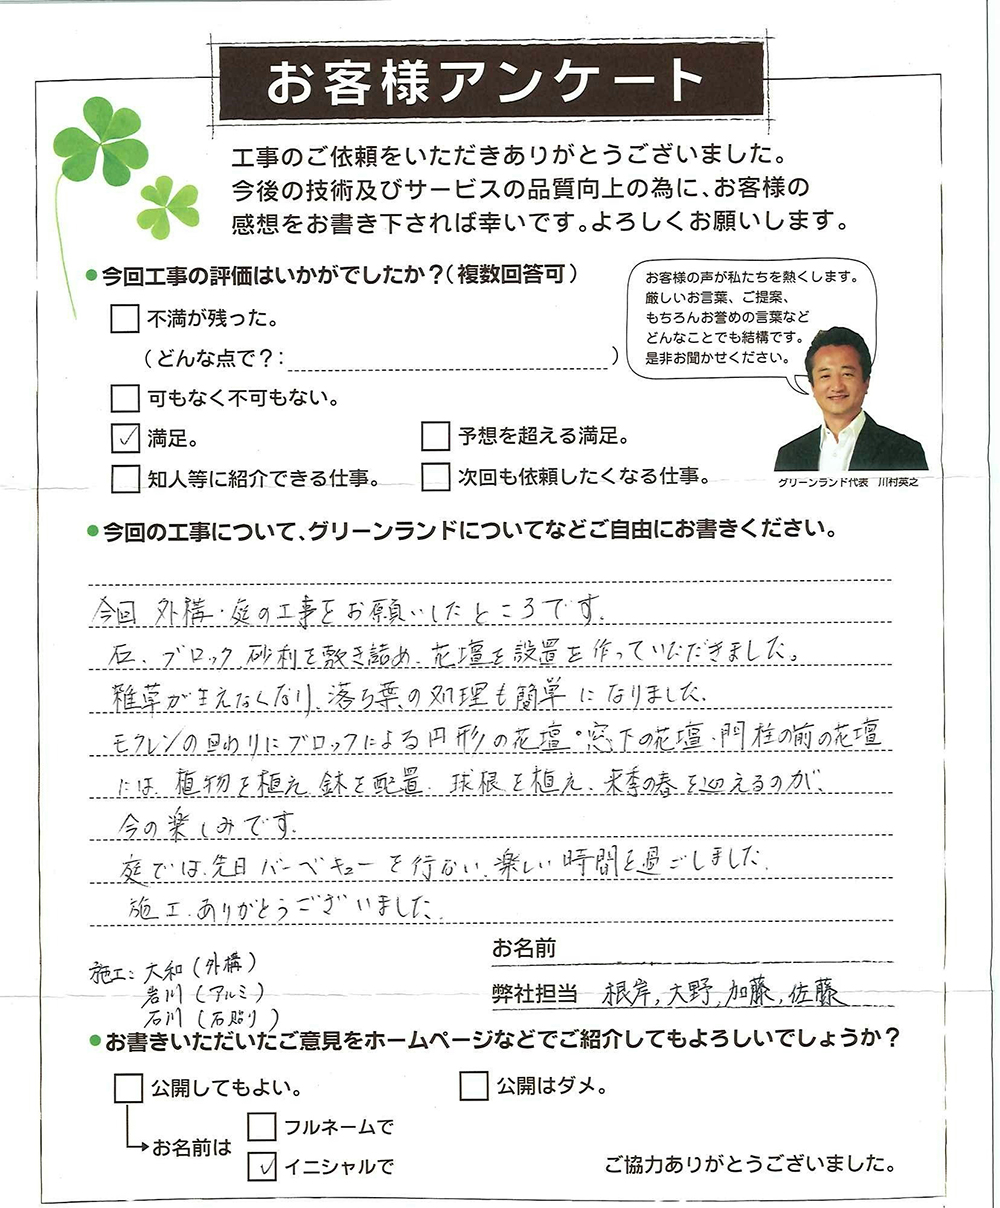 お客様アンケート
工事のご依頼をいただきありがとうございました。
今後の技術及びサービスの品質向上の為に、お客様の
感想をお書き下されば幸いです。よろしくお願いします。
●今回工事の評価はいかがでしたか？（複数回答可）
お客様の声が私たちを熱くします。
厳しいお言葉、ご提案、
もちろんお誉めの言葉など
どんなことでも結構です。
是非お聞かせください。
□ 不満が残った。
（どんな点で？：　　　）
□ 可もなく不可もない。
☑ 満足。　□ 予想を超える満足。
□ 知人等に紹介できる仕事。　□ 次回も依頼したくなる仕事。
グリーンランド代表　川村英之
●今回の工事について、グリーンランドについてなどご自由にお書きください。
今回 外構・庭の工事をお願いしたところです。
石、ブロック、砂利を敷き詰め、花壇を設置を作っていただきました。
雑草が生えなくなり、落ち葉の処理も簡単になりました。
モクレンの回わりにブロックによる円形の花壇・窓下の花壇、門柱の前の花壇
には、植物を植え、鉢を配置、球根を植え、来季の春を迎えるのが、
今の楽しみです。
庭では、先日バーベキューを行ない、楽しい時間を過ごしました。
施工、ありがとうございました。
お名前
施工：大和（外構）
岩川（アルミ）
石川（石貼り）
弊社担当　根岸，大野，加藤，佐藤
●お書きいただいたご意見をホームページなどでご紹介してもよろしいでしょうか？
□ 公開してもよい。　□ 公開はダメ。
お名前は　□ フルネームで
☑ イニシャルで
ご協力ありがとうございました。